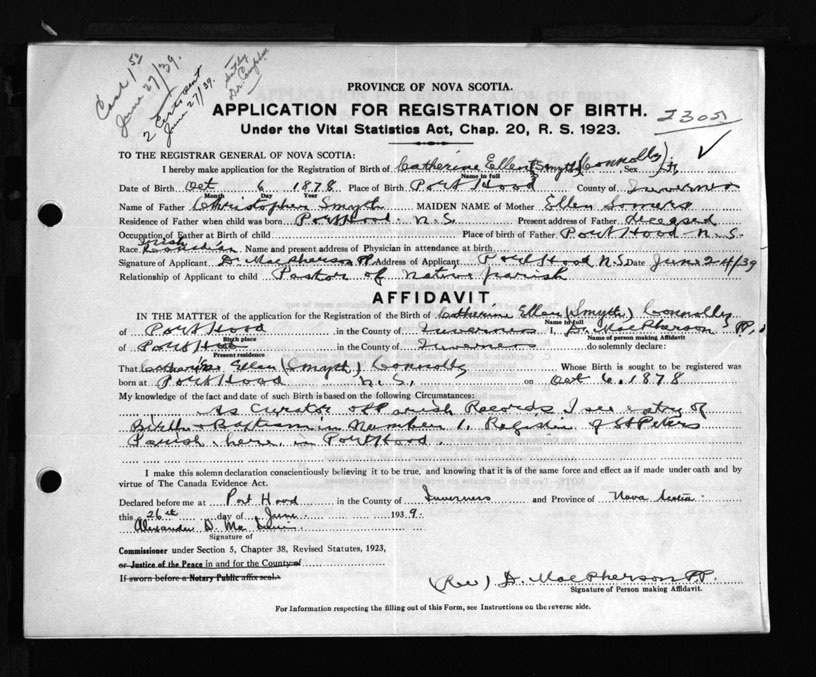 Cash 1.50
June 27/39.
2 Certs sent
June 27/39.
PROVINCE OF NOVA SCOTIA.
APPLICATION FOR REGISTRATION OF BIRTH.
Under the Vital Statistics Act, Chap. 20, R. S. 1923.
TO THE REGISTRAR GENERAL OF NOVA SCOTIA:
I hereby make application for the Registration of Birth of Catherine Ellen (Smyth) Connolly Sex F.
Name in full
Date of Birth Oct 6 1878 Place of Birth Port Hood County of Inverness
Month Day Year
Name of Father Christopher Smyth MAIDEN NAME of Mother Ellen Somers
Residence of Father when child was born Port Hood N.S. Present address of Father deceased
Occupation of Father at Birth of child Place of birth of Father Port Hood N.S.
Race Irish Name and present address of Physician in attendance at birth
Signature of Applicant D. MacPherson P.P. Address of Applicant Port Hood N.S Date June 24/39
Relationship of Applicant to child Pastor of Native parish
AFFIDAVIT
IN THE MATTER of the application for the Registration of the Birth of Catherine Ellen (Smyth) Connolly
Name in full
of Port Hood in the County of Inverness I, D. MacPherson P.P.
Birth place Name of person making Affidavit
of Port Hood in the County of Inverness do solemnly declare:
Present residence
That Catherine Ellen (Smyth) Connolly Whose Birth is sought to be registered was
born at Port Hood N.S. on Oct 6, 1878
My knowledge of the fact and date of such Birth is based on the following Circumstances:
As Curator of Parish Records, I see entry of
Birth & Baptism in Number 1. Register of St Peters
Parish here in Port Hood.
I make this solemn declaration conscientiously believing it to be true, and knowing that it is of the same force and effect as if made under oath and by
virtue of The Canada Evidence Act.
Declared before me at Port Hood in the County of Inverness and Province of Nova Scotia
this 26th day of June 1939.
Alexander D. Mac
Signature of
Commissioner under Section 5, Chapter 38, Revised Statutes, 1923,
or Justice of the Peace in and for the County of
If sworn before a Notary Public affix seal.
(Rev) D. MacPherson P.P.
Signature of Person making Affidavit.
For Information respecting the filling out of this Form, see Instructions on the reverse side.